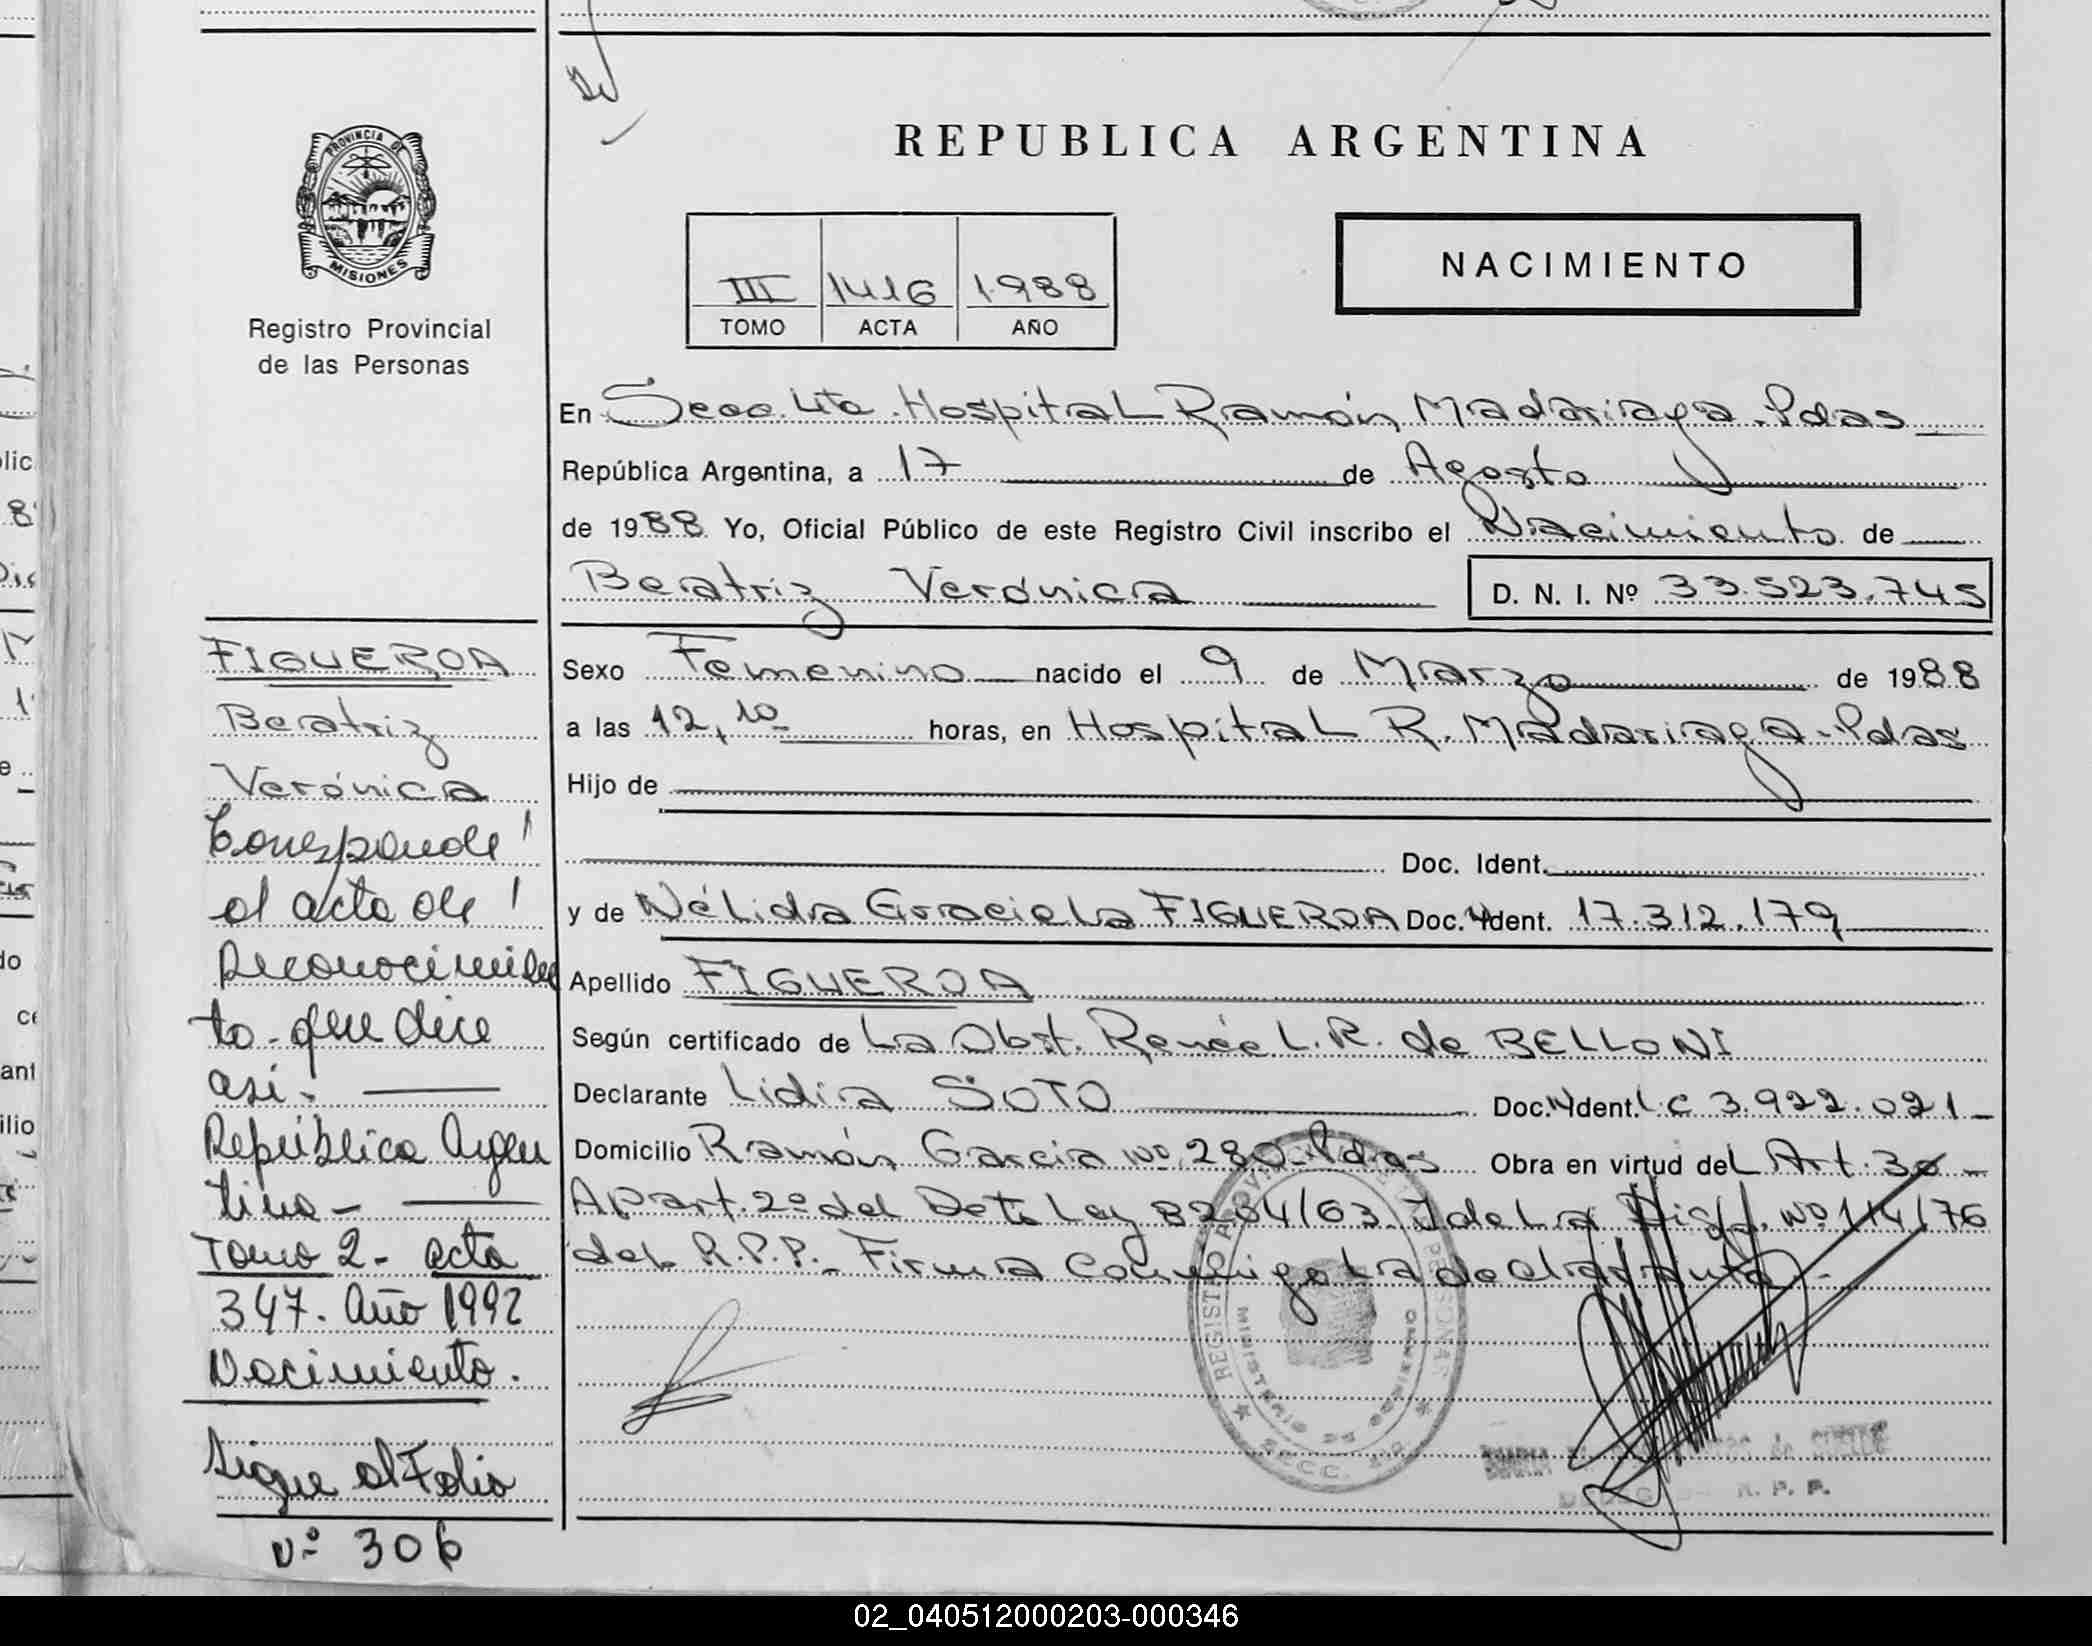 PROVINCIA DE
MISIONES
Registro Provincial
de las Personas
REPUBLICA ARGENTINA
NACIMIENTO
III 1416 1988
TOMO ACTA AÑO
En Secc. 4ta. Hospital Ramón Madariaga. Pdas
República Argentina, a 17 de Agosto
de 1988 Yo, Oficial Público de este Registro Civil inscribo el Nacimiento de
Beatriz Verónica D. N. I. Nº 33.523.745
Sexo Femenino nacido el 9 de Marzo de 1988
a las 12,10 horas, en Hospital R. Madariaga-Pdas
Hijo de
Doc. Ident.
y de Nélida Graciela FIGUEROA Doc. Ident. 17.312.179
Apellido FIGUEROA
Según certificado de La Obst. Renée L.R. de BELLONI
Declarante Lidia SOTO Doc. Ident. L.C 3.922.021-
Domicilio Ramón Garcia Nº 280-Pdas Obra en virtud del Art. 30-
Apart. 2º del Dcto Ley 8204/63 y de La Disp. Nº 114/76
del R.P.P.- Firma conmigo La declarante-
FIGUEROA
Beatriz
Verónica
Corresponde
al acta de
Reconocimien
to-que dice
asi:
República Argen
tina-
Tomo 2- acta
347. Año 1992
Nacimiento.
Sigue al Folio
Nº 306
REGISTRO PROVINCIAL DE LAS PERSONAS
MINISTERIO DE GOBIERNO
SECC. 4ta
R. P. P.
02_040512000203-000346